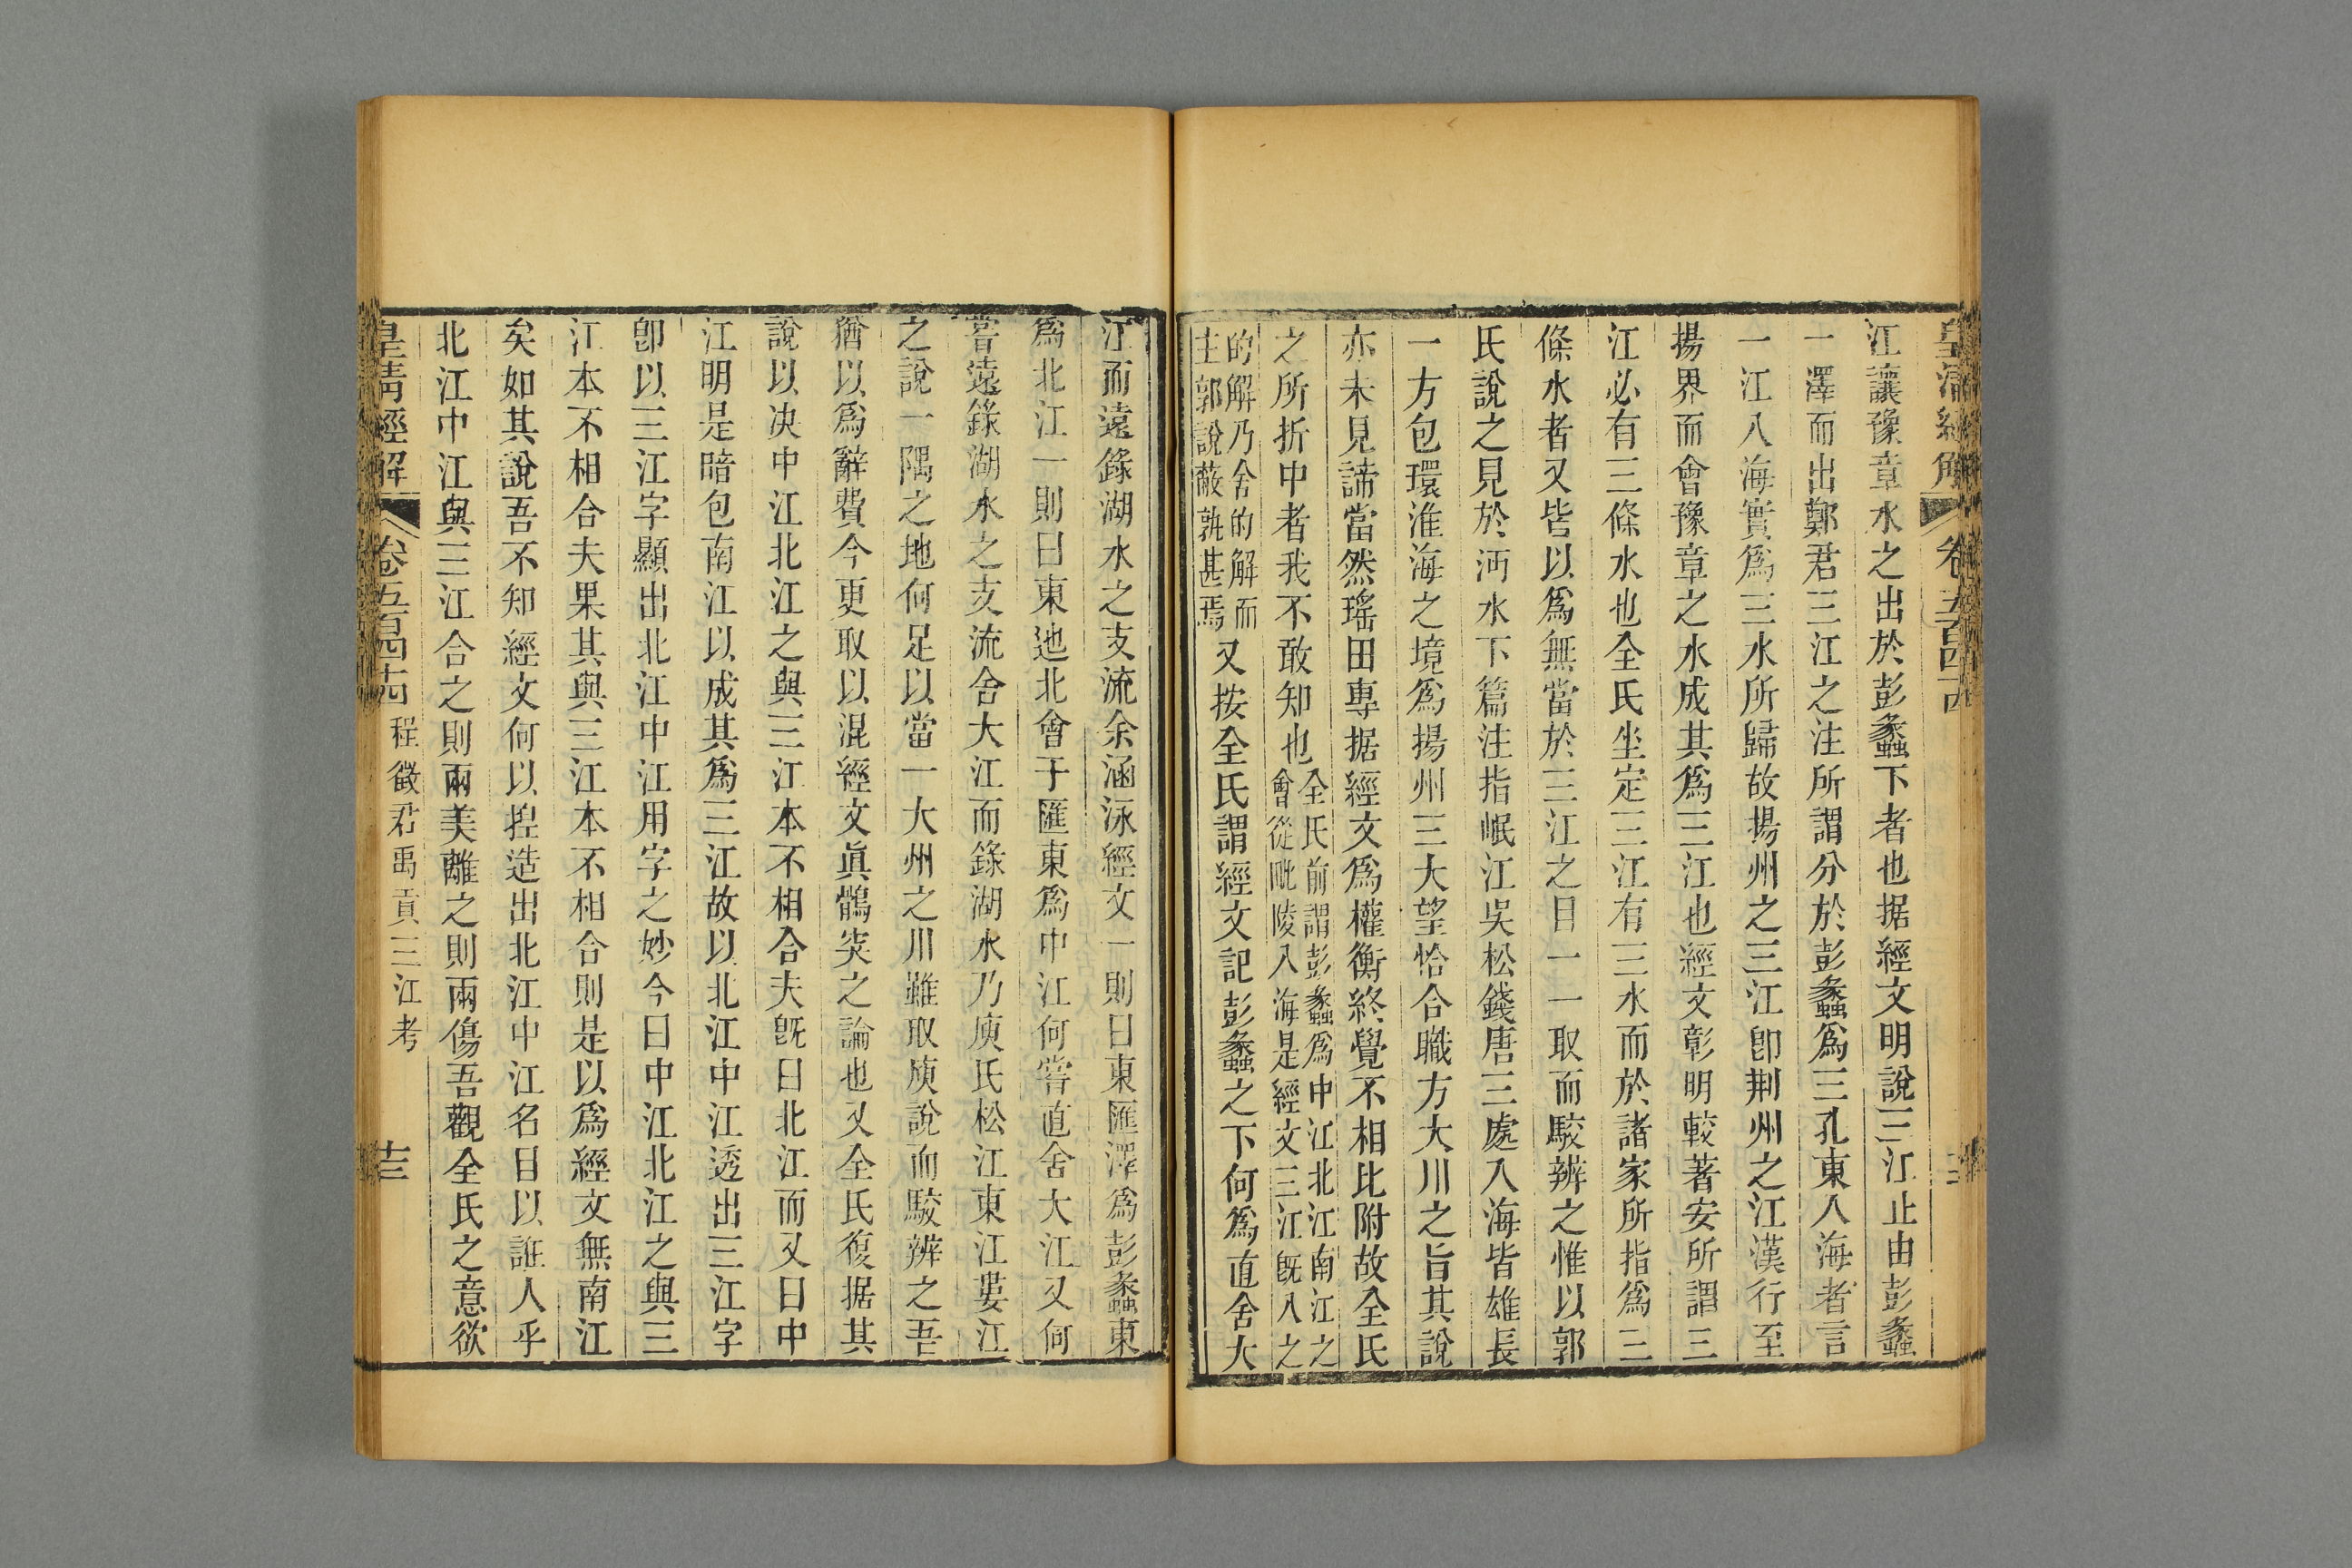 皇清經解 卷五百四十四
江讓豫章水之出於彭蠡下者也据經文明說三江止由彭蠡
一澤而出鄭君三江之注所謂分於彭蠡爲三孔東入海者言
一江入海實爲三水所歸故揚州之三江卽荆州之江漢行至
揚界而會豫章之水成其爲三江也經文彰明較著安所謂三
江必有三條水也全氏坐定三江有三水而於諸家所指爲三
條水者又皆以爲無當於三江之目一一取而駮辨之惟以郭
氏說之見於沔水下篇注指岷江吳松錢唐三處入海皆雄長
一方包環淮海之境爲揚州三大望恰合職方大川之旨其說
亦未見諦當然瑤田專据經文爲權衡終覺不相比附故全氏
之所折中者我不敢知也全氏前謂彭蠡爲中江北江南江之會從毗陵入海是經文三江旣入之
的解乃舍的解而主郭說蔽孰甚焉又按全氏謂經文記彭蠡之下何爲直舍大
江而遠錄湖水之支流余涵泳經文一則曰東匯澤爲彭蠡東
爲北江一則曰東迆北會于匯東爲中江何嘗直舍大江又何
嘗遠錄湖水之支流舍大江而錄湖水乃庾氏松江東江婁江
之說一隅之地何足以當一大州之川雖取庾說而駮辨之吾
猶以爲辭費今更取以混經文眞鶻突之論也又全氏復据其
說以决中江北江之與三江本不相合夫旣曰北江而又曰中
江明是暗包南江以成其爲三江故以北江中江透出三江字
卽以三江字顯出北江中江用字之妙今曰中江北江之與三
江本不相合夫果其與三江本不相合則是以爲經文無南江
矣如其說吾不知經文何以揑造出北江中江名目以誑人乎
北江中江與三江合之則兩美離之則兩傷吾觀全氏之意欲
皇淸經解 卷五百四十四 程徵君禹貢三江考 十三